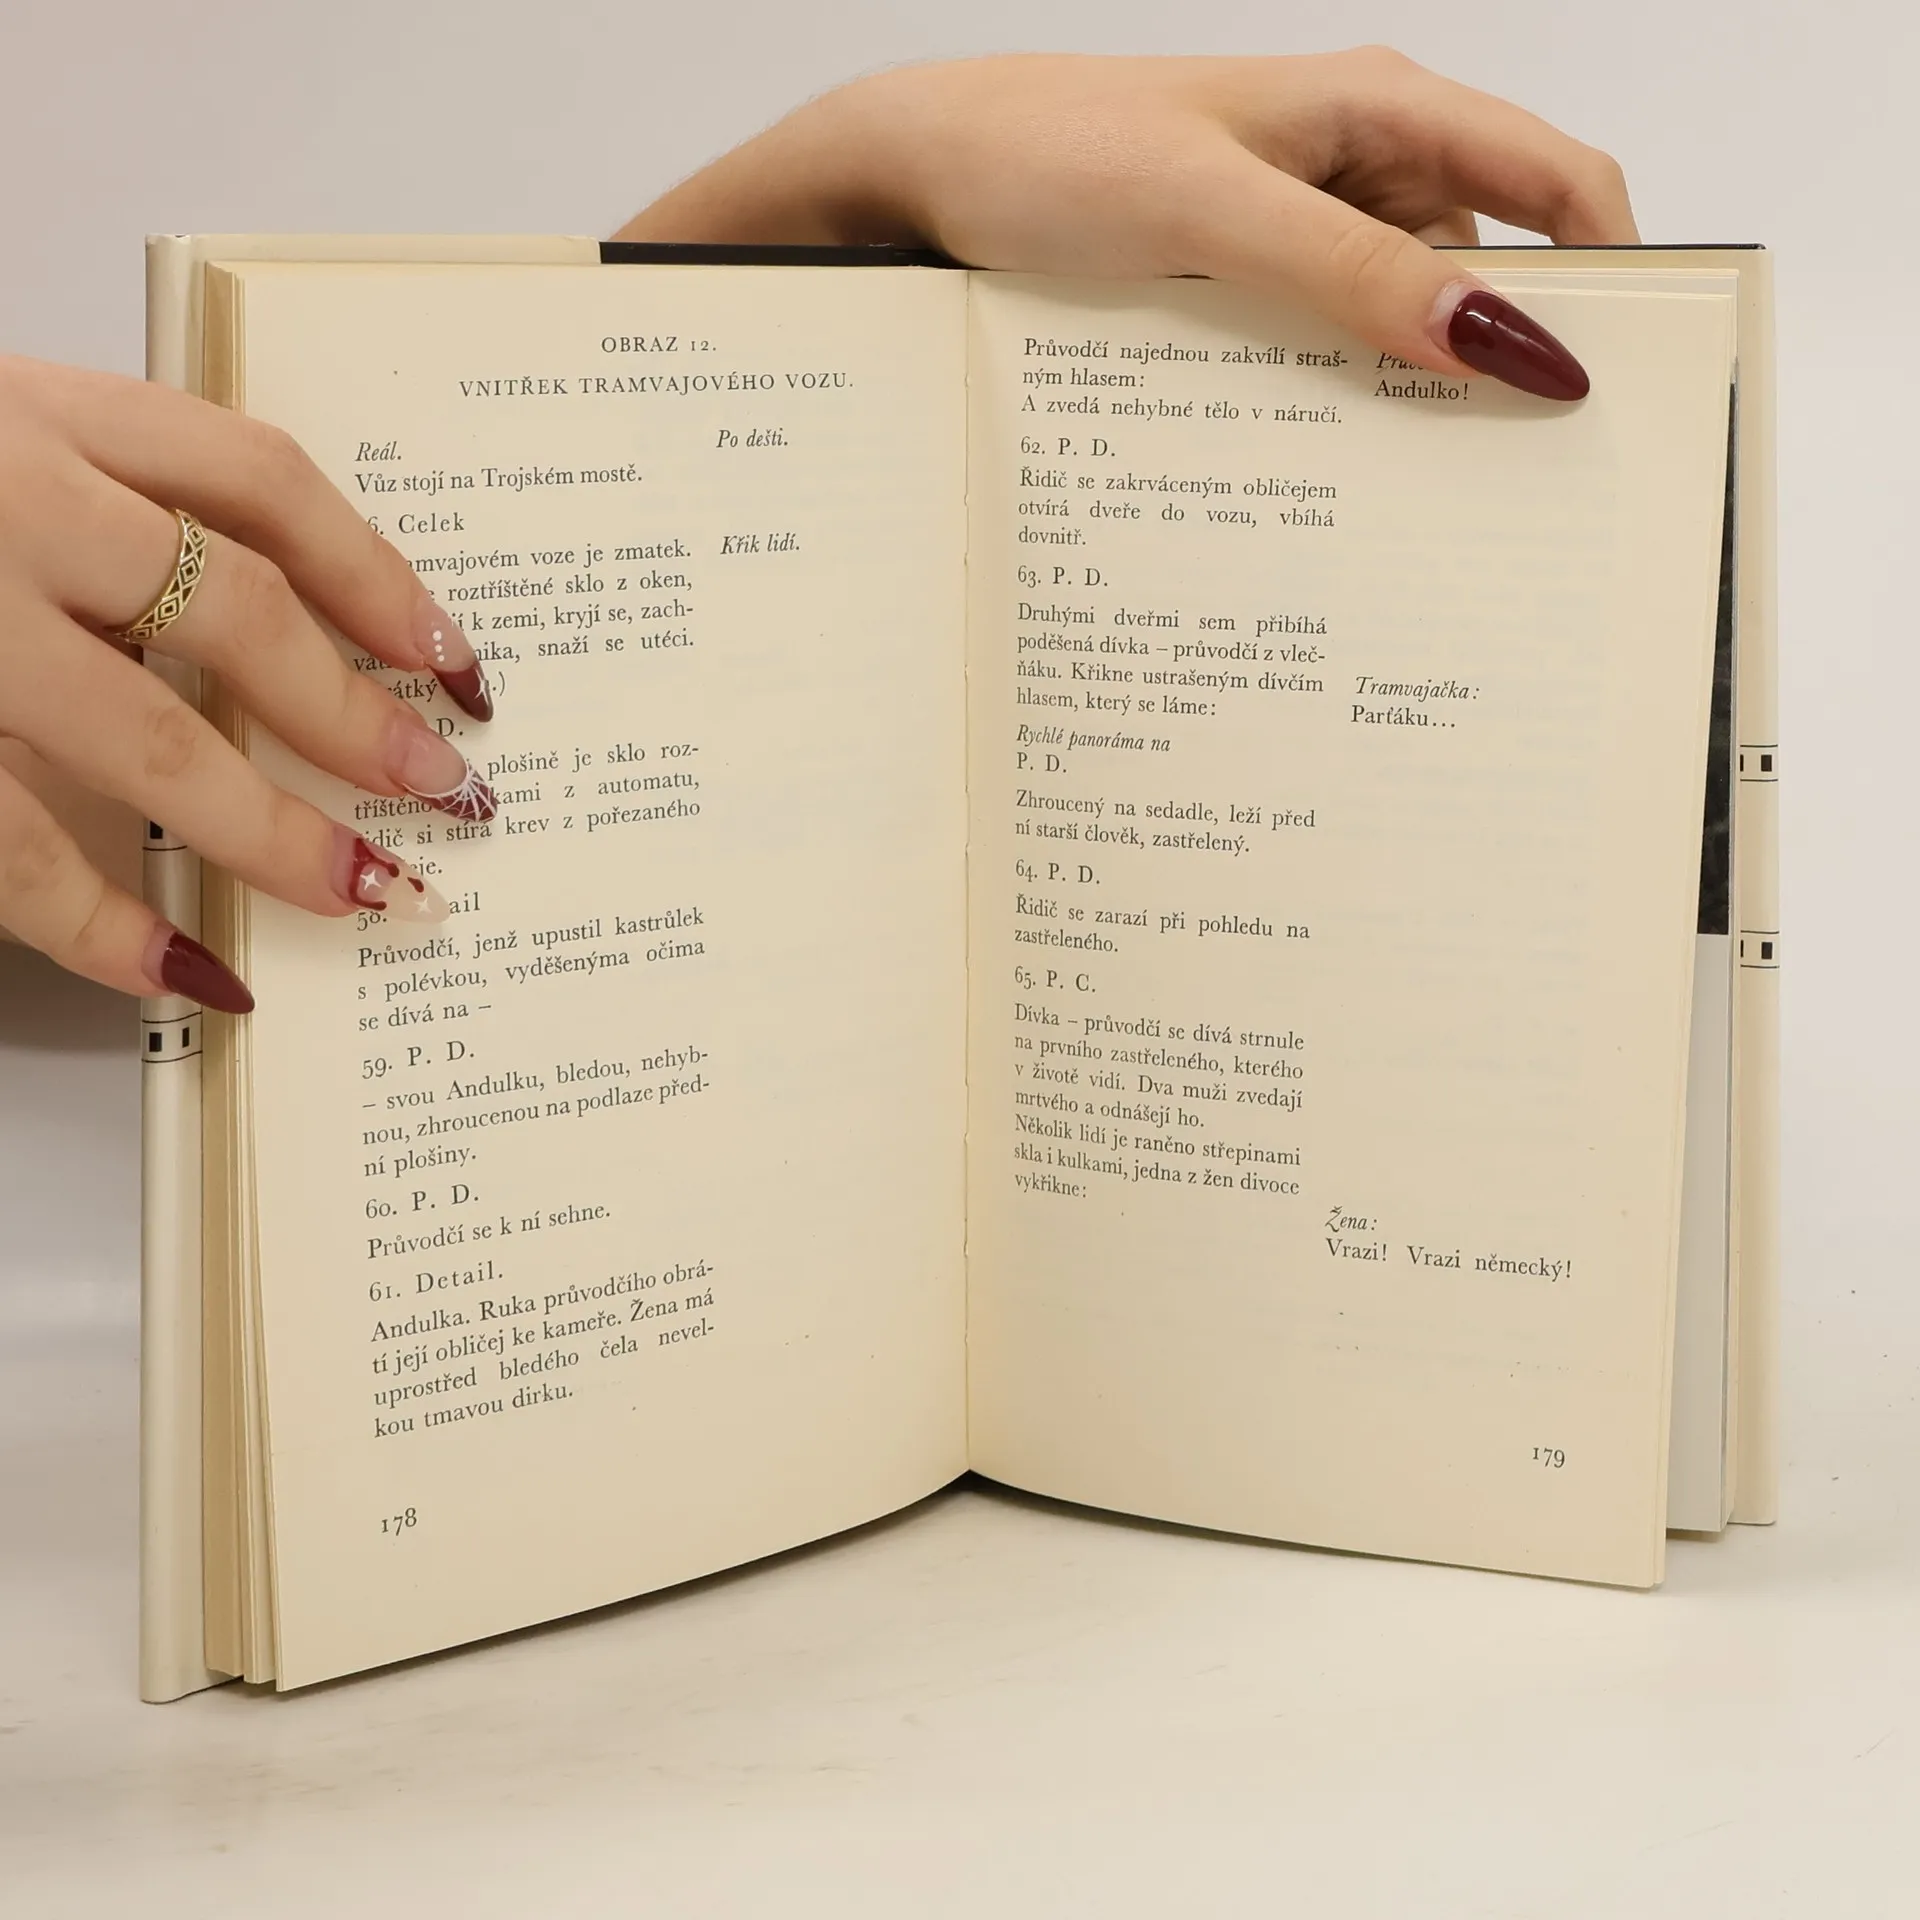 OBRAZ 12.
VNITŘEK TRAMVAJOVÉHO VOZU.
Reál.
Po dešti.
Vůz stojí na Trojském mostě.
6. Celek
voze je zmatek.
Křik lidí.
roztříštěné sklo z oken,
k zemi, kryjí se, zach-
snaží se utéci.
D.
plošině je sklo roz-
z automatu,
si stírá krev z pořezaného
Průvodčí, jenž upustil kastrůlek
s polévkou, vyděšenýma očima
se dívá na –
59. P. D.
– svou Andulku, bledou, nehyb-
nou, zhroucenou na podlaze před-
ní plošiny.
60. P. D.
Průvodčí se k ní sehne.
61. Detail.
Andulka. Ruka průvodčího obrá-
tí její obličej ke kameře. Žena má
uprostřed bledého čela nevel-
kou tmavou dirku.
178
Průvodčí najednou zakvílí straš-
ným hlasem:
Andulko!
A zvedá nehybné tělo v náručí.
62. P. D.
Řidič se zakrváceným obličejem
otvírá dveře do vozu, vbíhá
dovnitř.
63. P. D.
Druhými dveřmi sem přibíhá
poděšená dívka – průvodčí z vleč-
ňáku. Křikne ustrašeným dívčím
hlasem, který se láme:
Tramvajačka:
Parťáku...
Rychlé panoráma na
P. D.
Zhroucený na sedadle, leží před
ní starší člověk, zastřelený.
64. P. D.
Řidič se zarazí při pohledu na
zastřeleného.
65. P. C.
Dívka – průvodčí se dívá strnule
na prvního zastřeleného, kterého
v životě vidí. Dva muži zvedají
mrtvého a odnášejí ho.
Několik lidí je raněno střepinami
skla i kulkami, jedna z žen divoce
vykřikne:
Žena:
Vrazi! Vrazi německý!
179